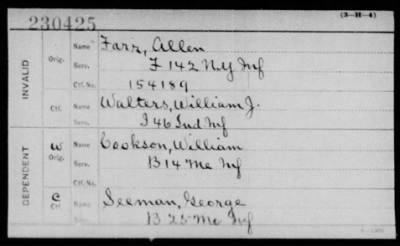 230425
(3-H-4)
INVALID
Orig.
Name Farr, Allen
Serv. F 142 N.Y. Inf
Ctf. No. 154189
Ctf.
Name Walters, William J.
Serv. I 46 Ind Inf
DEPENDENT
W
Orig.
Name Cookson, William
Serv. B 14 Me Inf
Ctf. No.
C
Ctf.
Name Seeman, George
Serv. B 25 Mo Inf